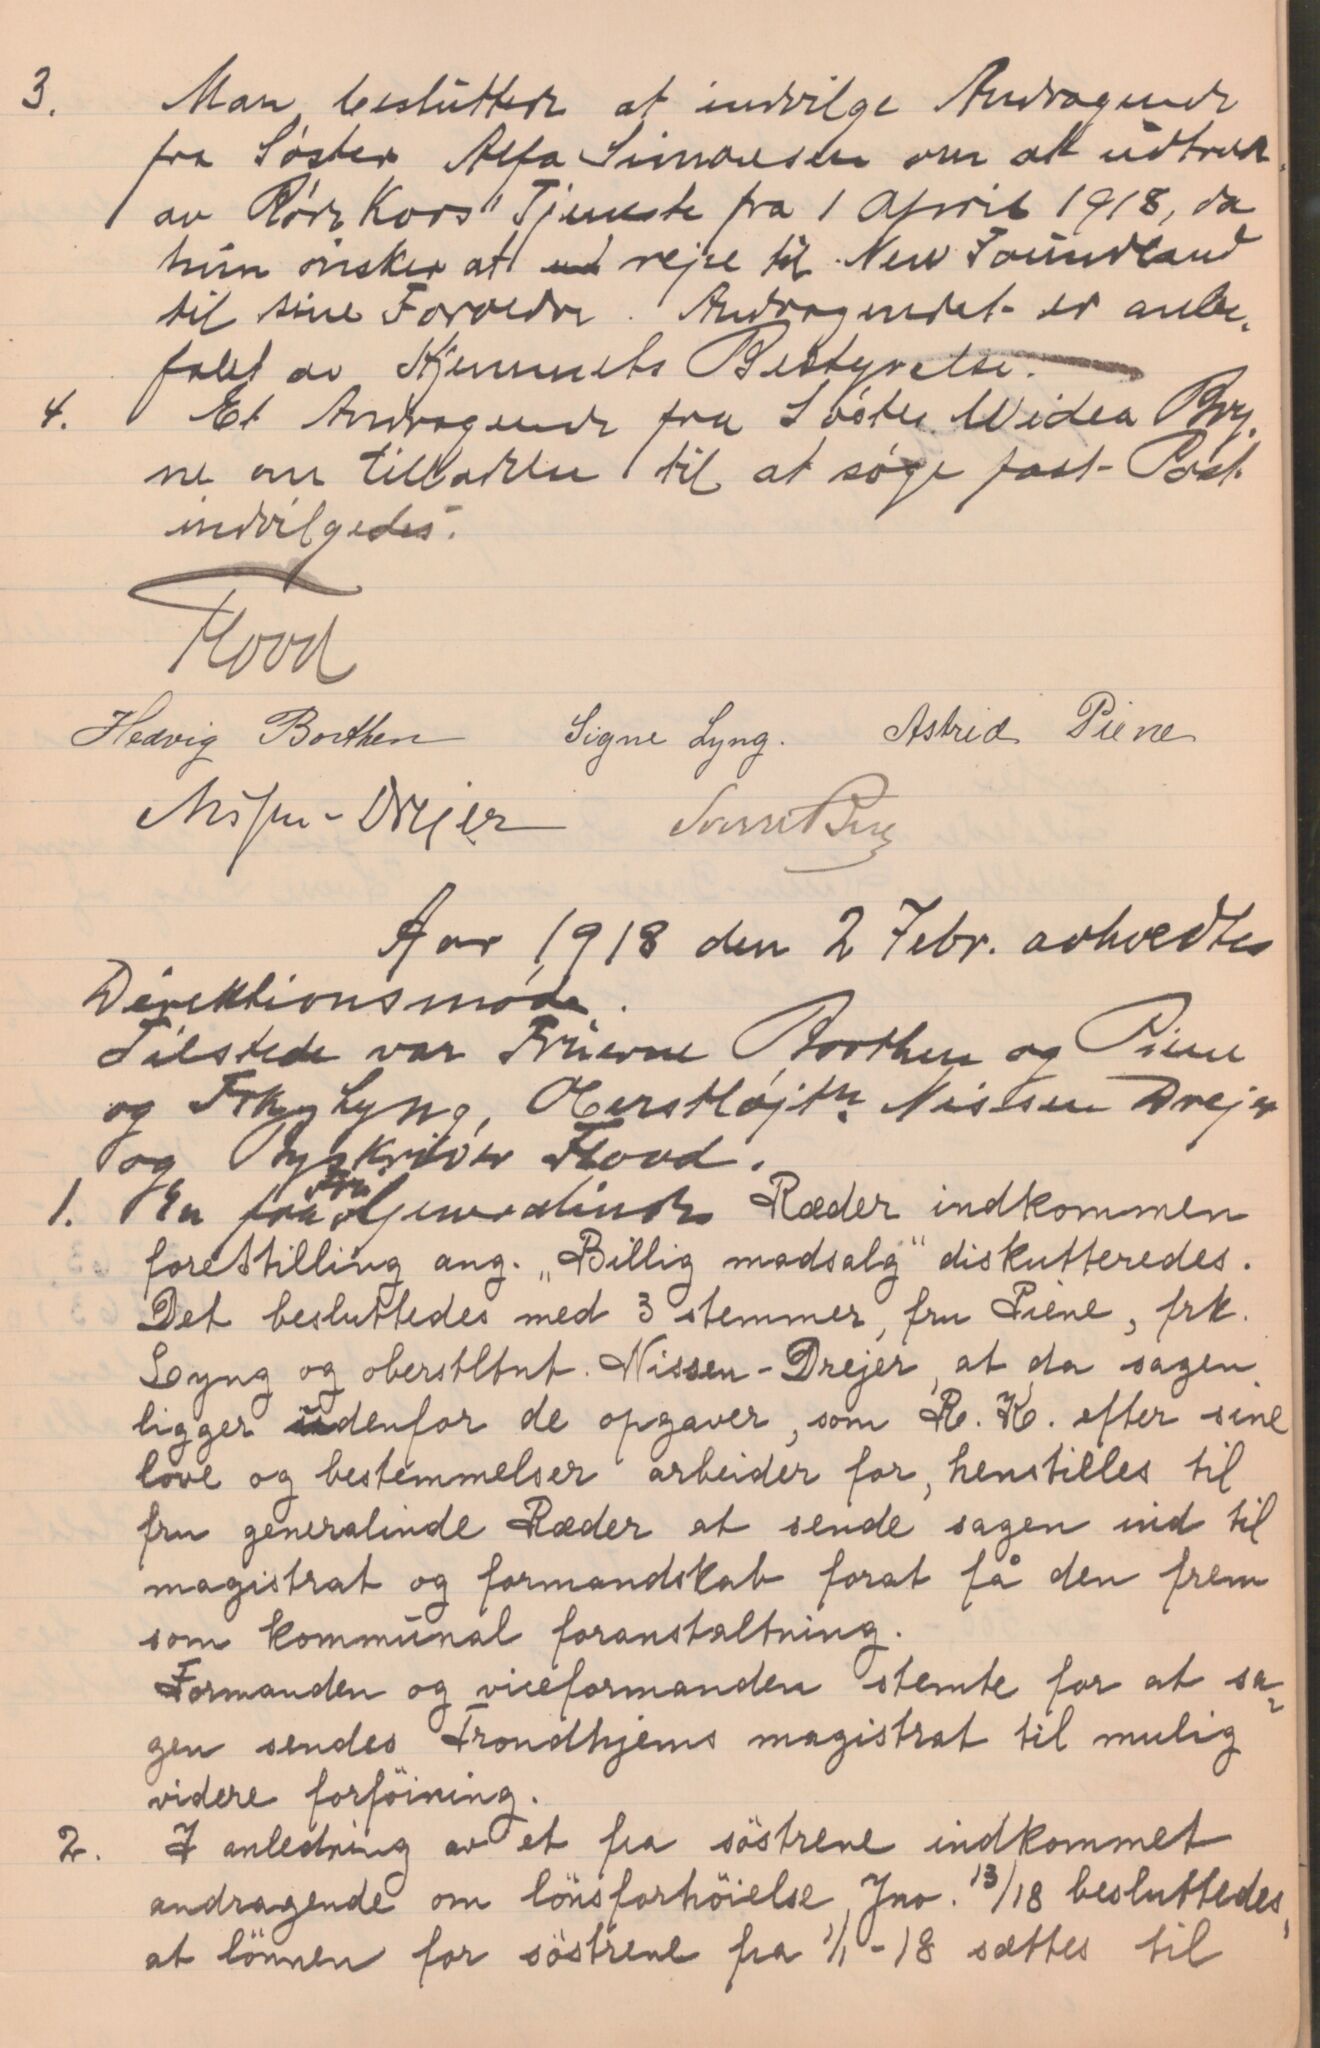 3. Man besluttede at indvilge Andragende
fra Søster Alfa Simonsen om at udtræde
av Røde Kors' Tjeneste fra 1 April 1918, da
hun ønsker at rejse til New Foundland
til sine Forældre. Andragendet er anbe-
falet av Hjemmets Bestyrelse.
4. Et Andragende fra Søster Widea Bry-
ne om tilladelse til at søge fast Post
indvilgedes.
Flood
Hedvig Borthen Signe Lyng. Astrid Piene
Nissen-Drejer
Aar 1918 den 2 Febr. avholdtes
Direktionsmøde.
Tilstede var Fruerne Borthen og Piene
og Frk. Lyng, Oberstløjtn. Nissen Drejer
og Byskriver Flood.
1. En fra Fru Generalinde Ræder indkommen
forestilling ang. „Billig madsalg" diskutteredes.
Det besluttedes med 3 stemmer, fru Piene, frk.
Lyng og oberstltnt. Nissen-Drejer, at da sagen
ligger udenfor de opgaver, som R. K. efter sine
love og bestemmelser arbeider for, henstilles til
fru generalinde Ræder at sende sagen ind til
magistrat og formandskab forat få den frem
som kommunal foranstaltning.
Formanden og viceformanden stemte for at sa-
gen sendes Trondhjems magistrat til mulig
videre forföining.
2. I anledning av et fra söstrene indkommet
andragende om lönsforhöielse Jno. 13/18 besluttedes,
at lönnen for söstrene fra 1/1-18 sættes til